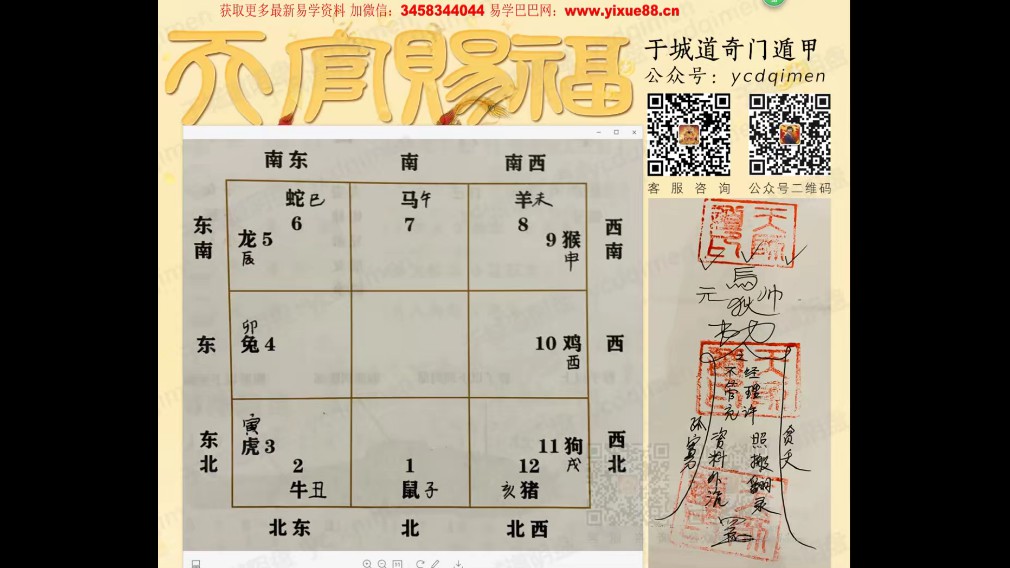 获取更多最新易学资料 加微信：3458344044 易学巴巴网：www.yixue88.cn
天官賜福
于城道奇门遁甲
公众号：ycdqimen
客服咨询
公众号二维码
南东
南
南西
蛇巳
6
马午
7
羊未
8
东南
龙5
辰
9猴
申
西南
东
卯
兔4
10鸡
酉
西
东北
寅
虎3
2
牛丑
1
鼠子
12
亥猪
11狗
戌
西北
北东
北
北西
元
帅
经理许
不管充
照搬翻录
资料外流